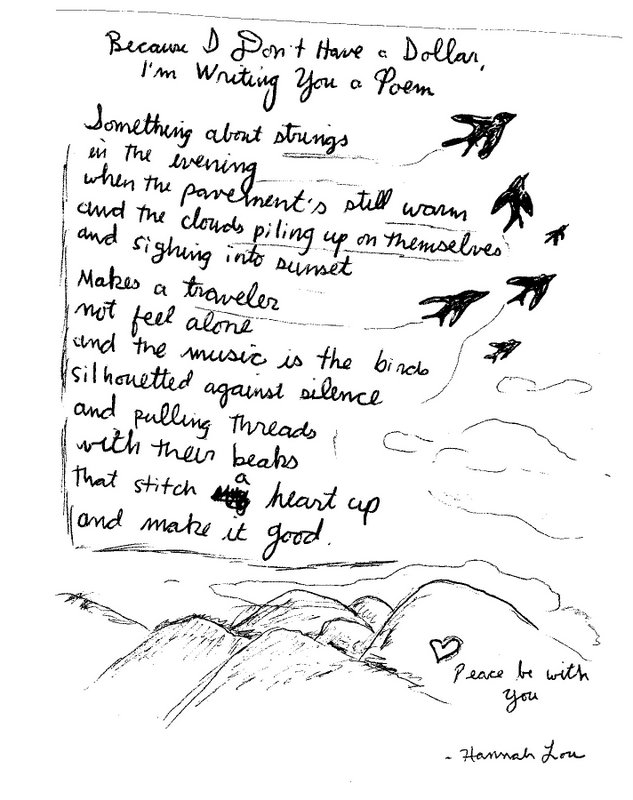 Because I Don't Have a Dollar,
I'm Writing You a Poem
Something about strings
in the evening
when the pavement's still warm
and the clouds piling up on themselves
and sighing into sunset
Makes a traveler
not feel alone
and the music is the birds
silhouetted against silence
and pulling threads
with their beaks
that stitch a heart up
and make it good.
Peace be with
you
- Hannah Lou